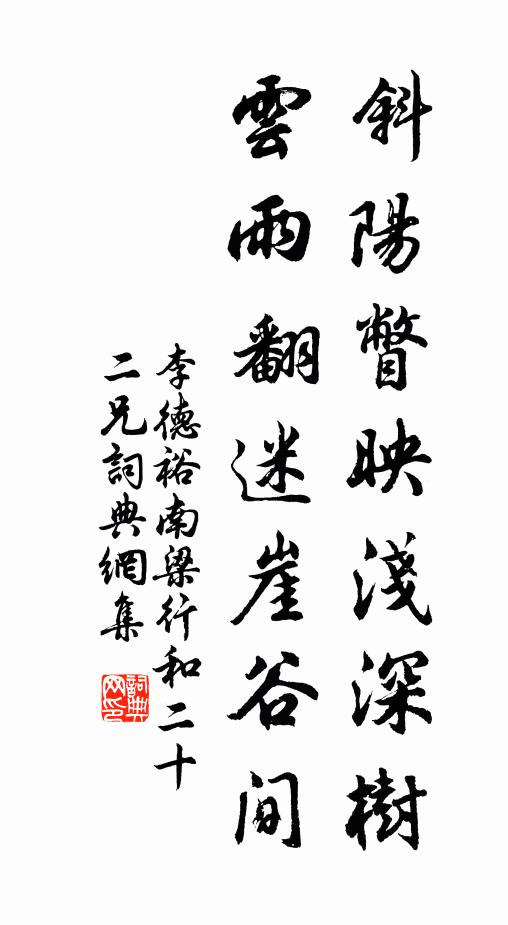 斜陽瞥映淺深樹
雲雨翻迷崖谷間
李德裕南梁行和二十
二兄詞典網集
詞典網印